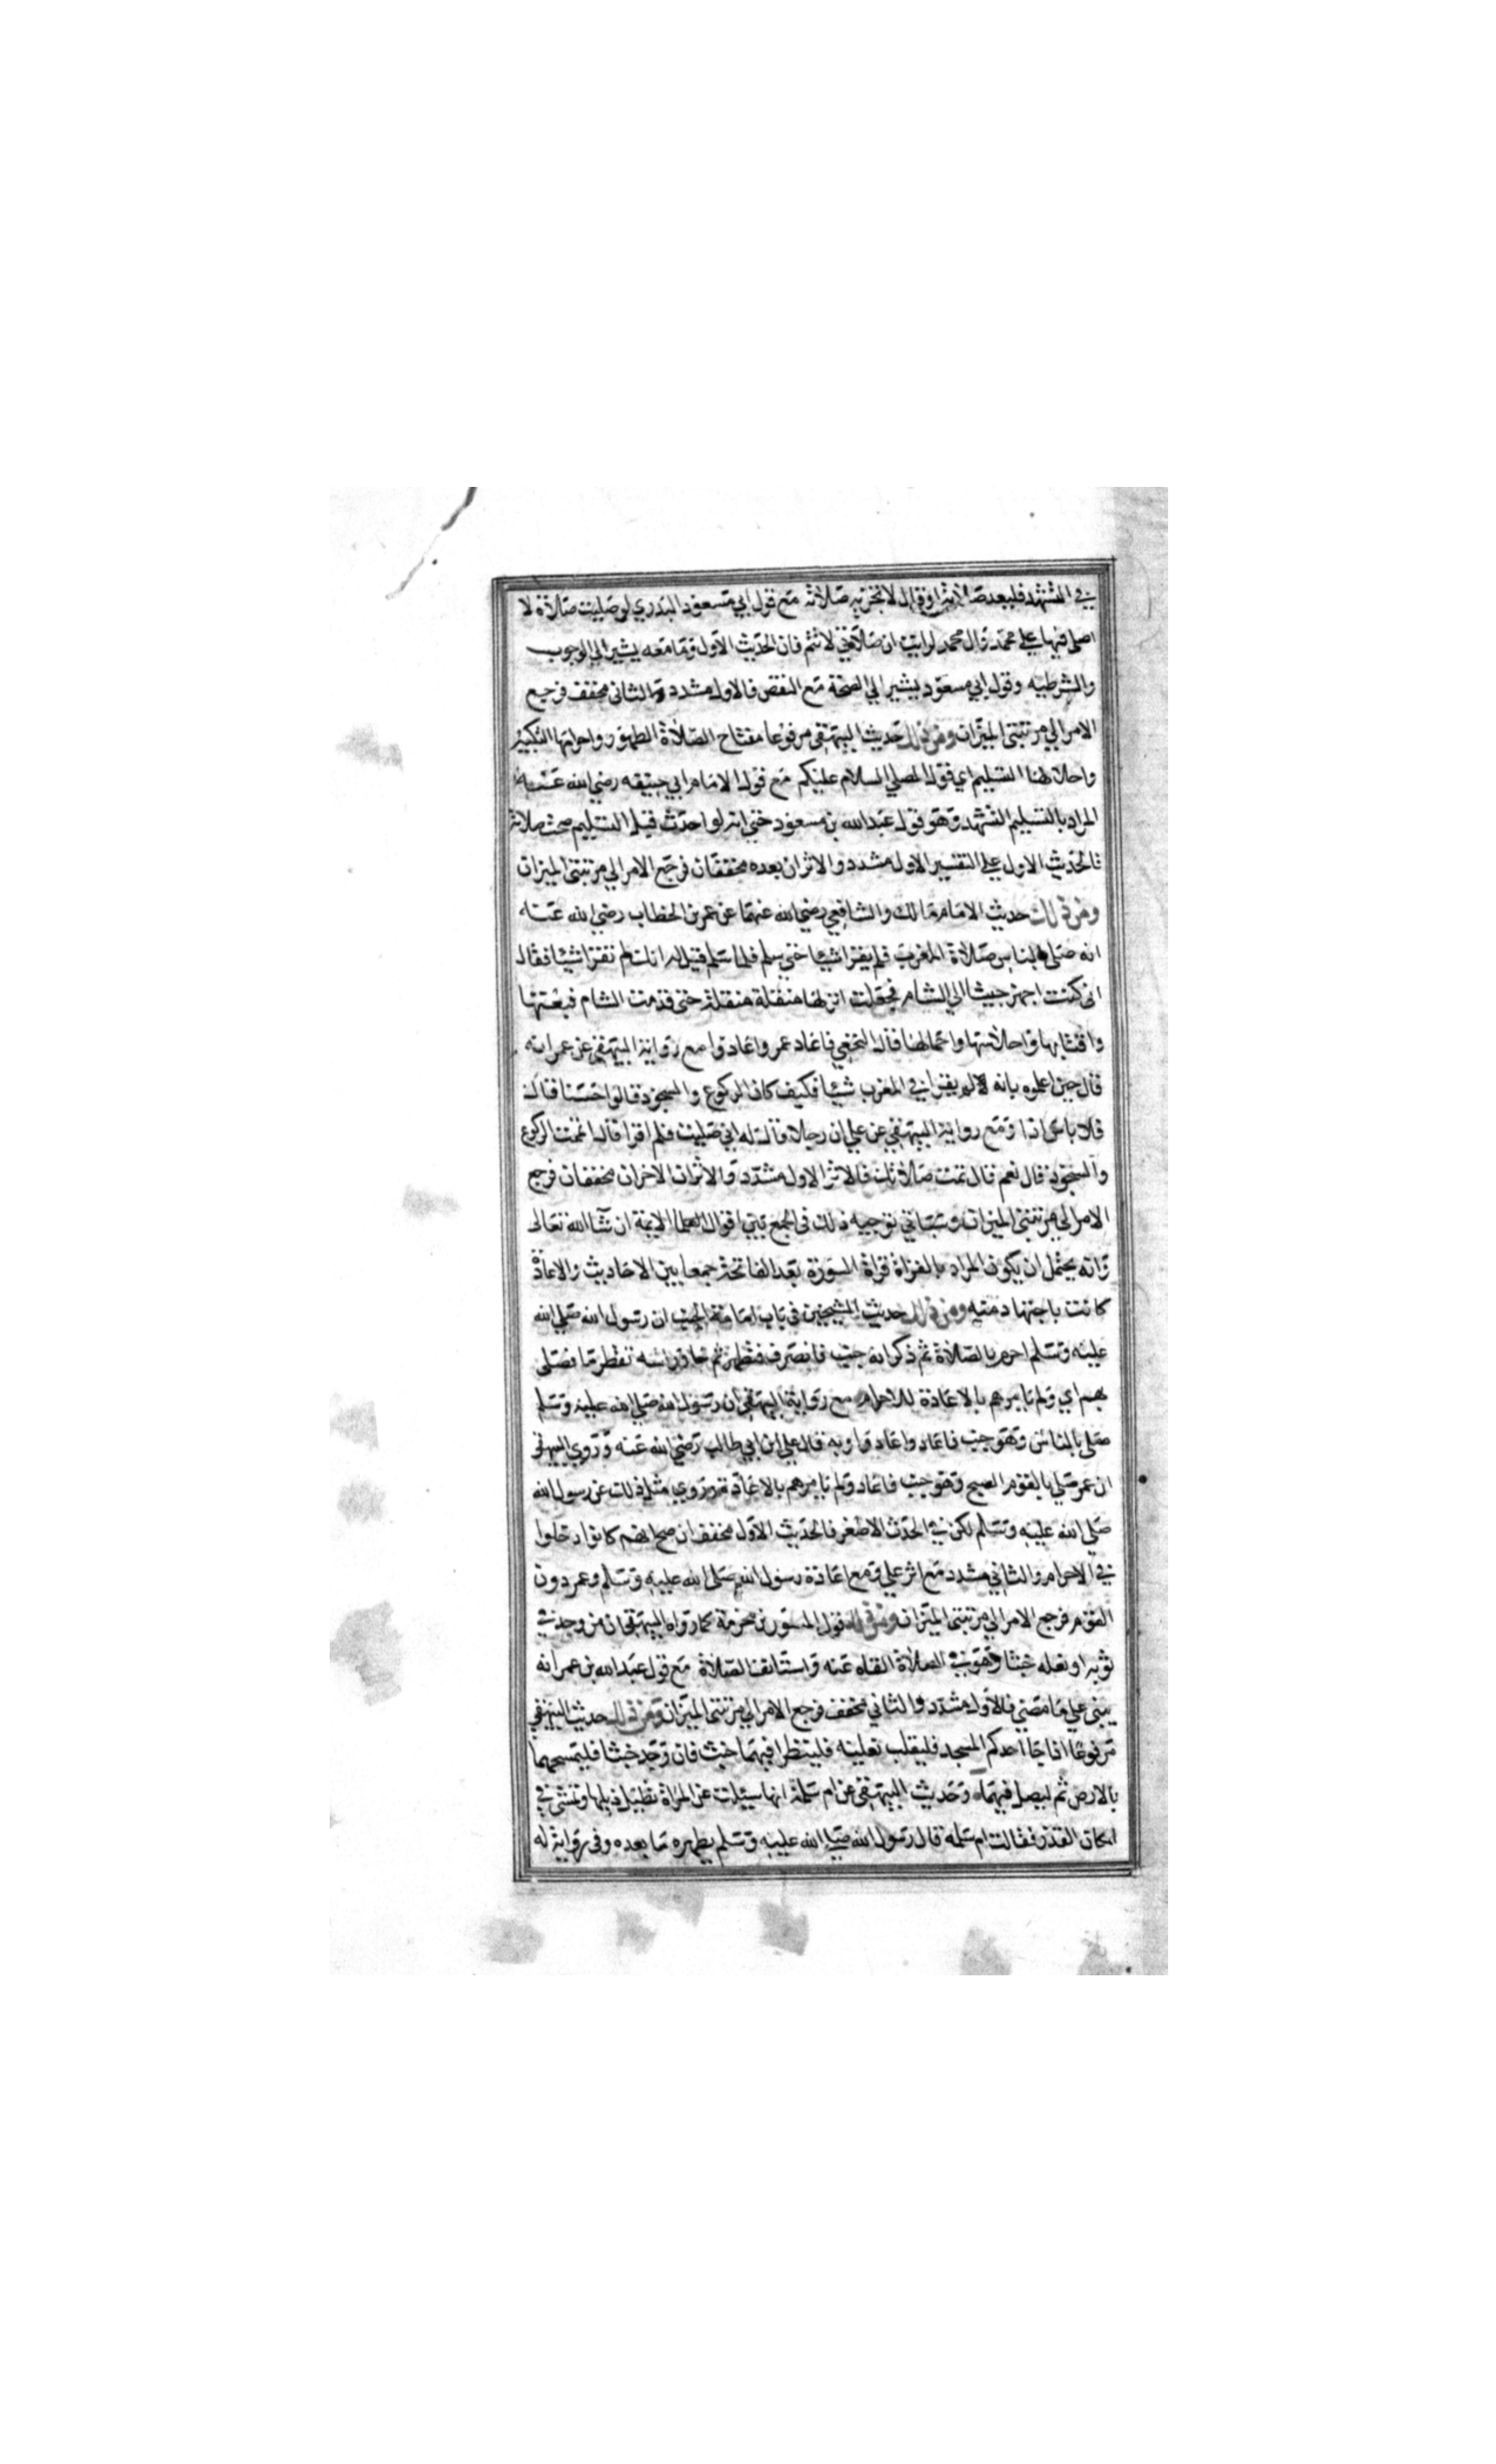 في التشهد فليعد صلاته او قال لا تجزيه صلاته مع قول ابي مسعود البدري لو صليت صلاة لا
اصلي فيها على محمد وال محمد لرايت ان صلاتي لا تتم فان الحديث الاول وما معه يشير الى الوجوب
والشرطيه وقول ابي مسعود يشير الى الصحة مع النقص فالاول مشدد والثاني مخفف فرجع
الامر الى مرتبتي الميزان ومن ذلك حديث البيهقي مرفوعا مفتاح الصلاة الطهور واحرامها التكبير
واحلالها التسليم اي قول المصلي السلام عليكم مع قول الامام ابي حنيفه رضي الله عنه
المراد بالتسليم التشهد وهو قول عبد الله بن مسعود حتى انه لو احدث قبل التسليم صحت صلاته
فالحديث الاول على التفسير الاول مشدد والاثران بعده مخففان فرجع الامر الى مرتبتي الميزان
ومن ذلك حديث الامام مالك والشافعي رضي الله عنهما عن عمر بن الخطاب رضي الله عنه
انه صلى بالناس صلاة المغرب فلم يقرا شيئا حتى سلم فلما سلم قيل له انك لم تقرا شيئا فقال
اني كنت اجهز جيشا الى الشام فجعلت انزلها منقلة منقلة حتى قدمت الشام فبعتها
واقتابها واحلاسها واحمالها قال النخعي فاعاد عمر واعادوا مع رواية البيهقي عن عمر انه
قال حين اعلموه بانه لم يقرا في المغرب شيئا فكيف كان الركوع والسجود قالوا حسنا قال
فلا باس اذا ومع رواية البيهقي عن علي ان رجلا قال له اني صليت فلم اقرا قال اتممت الركوع
والسجود قال نعم قال تمت صلاتك فالاثر الاول مشدد والاثران الاخران مخففان فرجع
الامر الى مرتبتي الميزان وسياتي توجيه ذلك في الجمع بين اقوال العلما الايمة ان شا الله تعالى
وانه يحتمل ان يكون المراد بالقراة قراة السورة بعد الفاتحة جمعا بين الاحاديث والاعادة
كانت باجتهاد منه ومن ذلك حديث الشيخين في باب امامة الجنب ان رسول الله صلى الله
عليه وسلم احرم بالصلاة ثم ذكر انه جنب فانصرف فتطهر ثم جا وراسه تقطر ما فصلى
بهم اي ولم يامرهم بالاعادة للاحرام مع رواية البيهقي ان رسول الله صلى الله عليه وسلم
صلى بالناس وهو جنب فاعاد واعادوا وبه قال علي ابن ابي طالب رضي الله عنه وروي البيهقي
ان عمر صلى بالقوم الصبح وهو جنب فاعاد ولم يامرهم بالاعادة وروي مثل ذلك عن رسول الله
صلى الله عليه وسلم لكن في الحدث الاصغر فالحديث الاول مخفف ان صح انهم كانوا دخلوا
في الاحرام والثاني مشدد مع اثر علي ومع اعادة رسول الله صلى الله عليه وسلم وعمر دون
القوم فرجع الامر الى مرتبتي الميزان ومن ذلك قول المسور بن مخرمة كما رواه البيهقي ان من وجد في
ثوبه او نعله خبثا وهو في الصلاة القاه عنه واستانف الصلاة مع قول عبد الله بن عمر انه
يبني على ما مضى فالاول مشدد والثاني مخفف فرجع الامر الى مرتبتي الميزان ومن ذلك حديث البيهقي
مرفوعا اذا جا احدكم المسجد فليقلب نعليه فلينظر فيهما خبث فان وجد خبثا فليمسحهما
بالارض ثم ليصل فيهما وحديث البيهقي عن ام سلمة انها سيلت عن المراة تطيل ذيلها وتمشي في
المكان القذر فقالت ام سلمه قال رسول الله صلى الله عليه وسلم يطهره ما بعده وفي رواية له